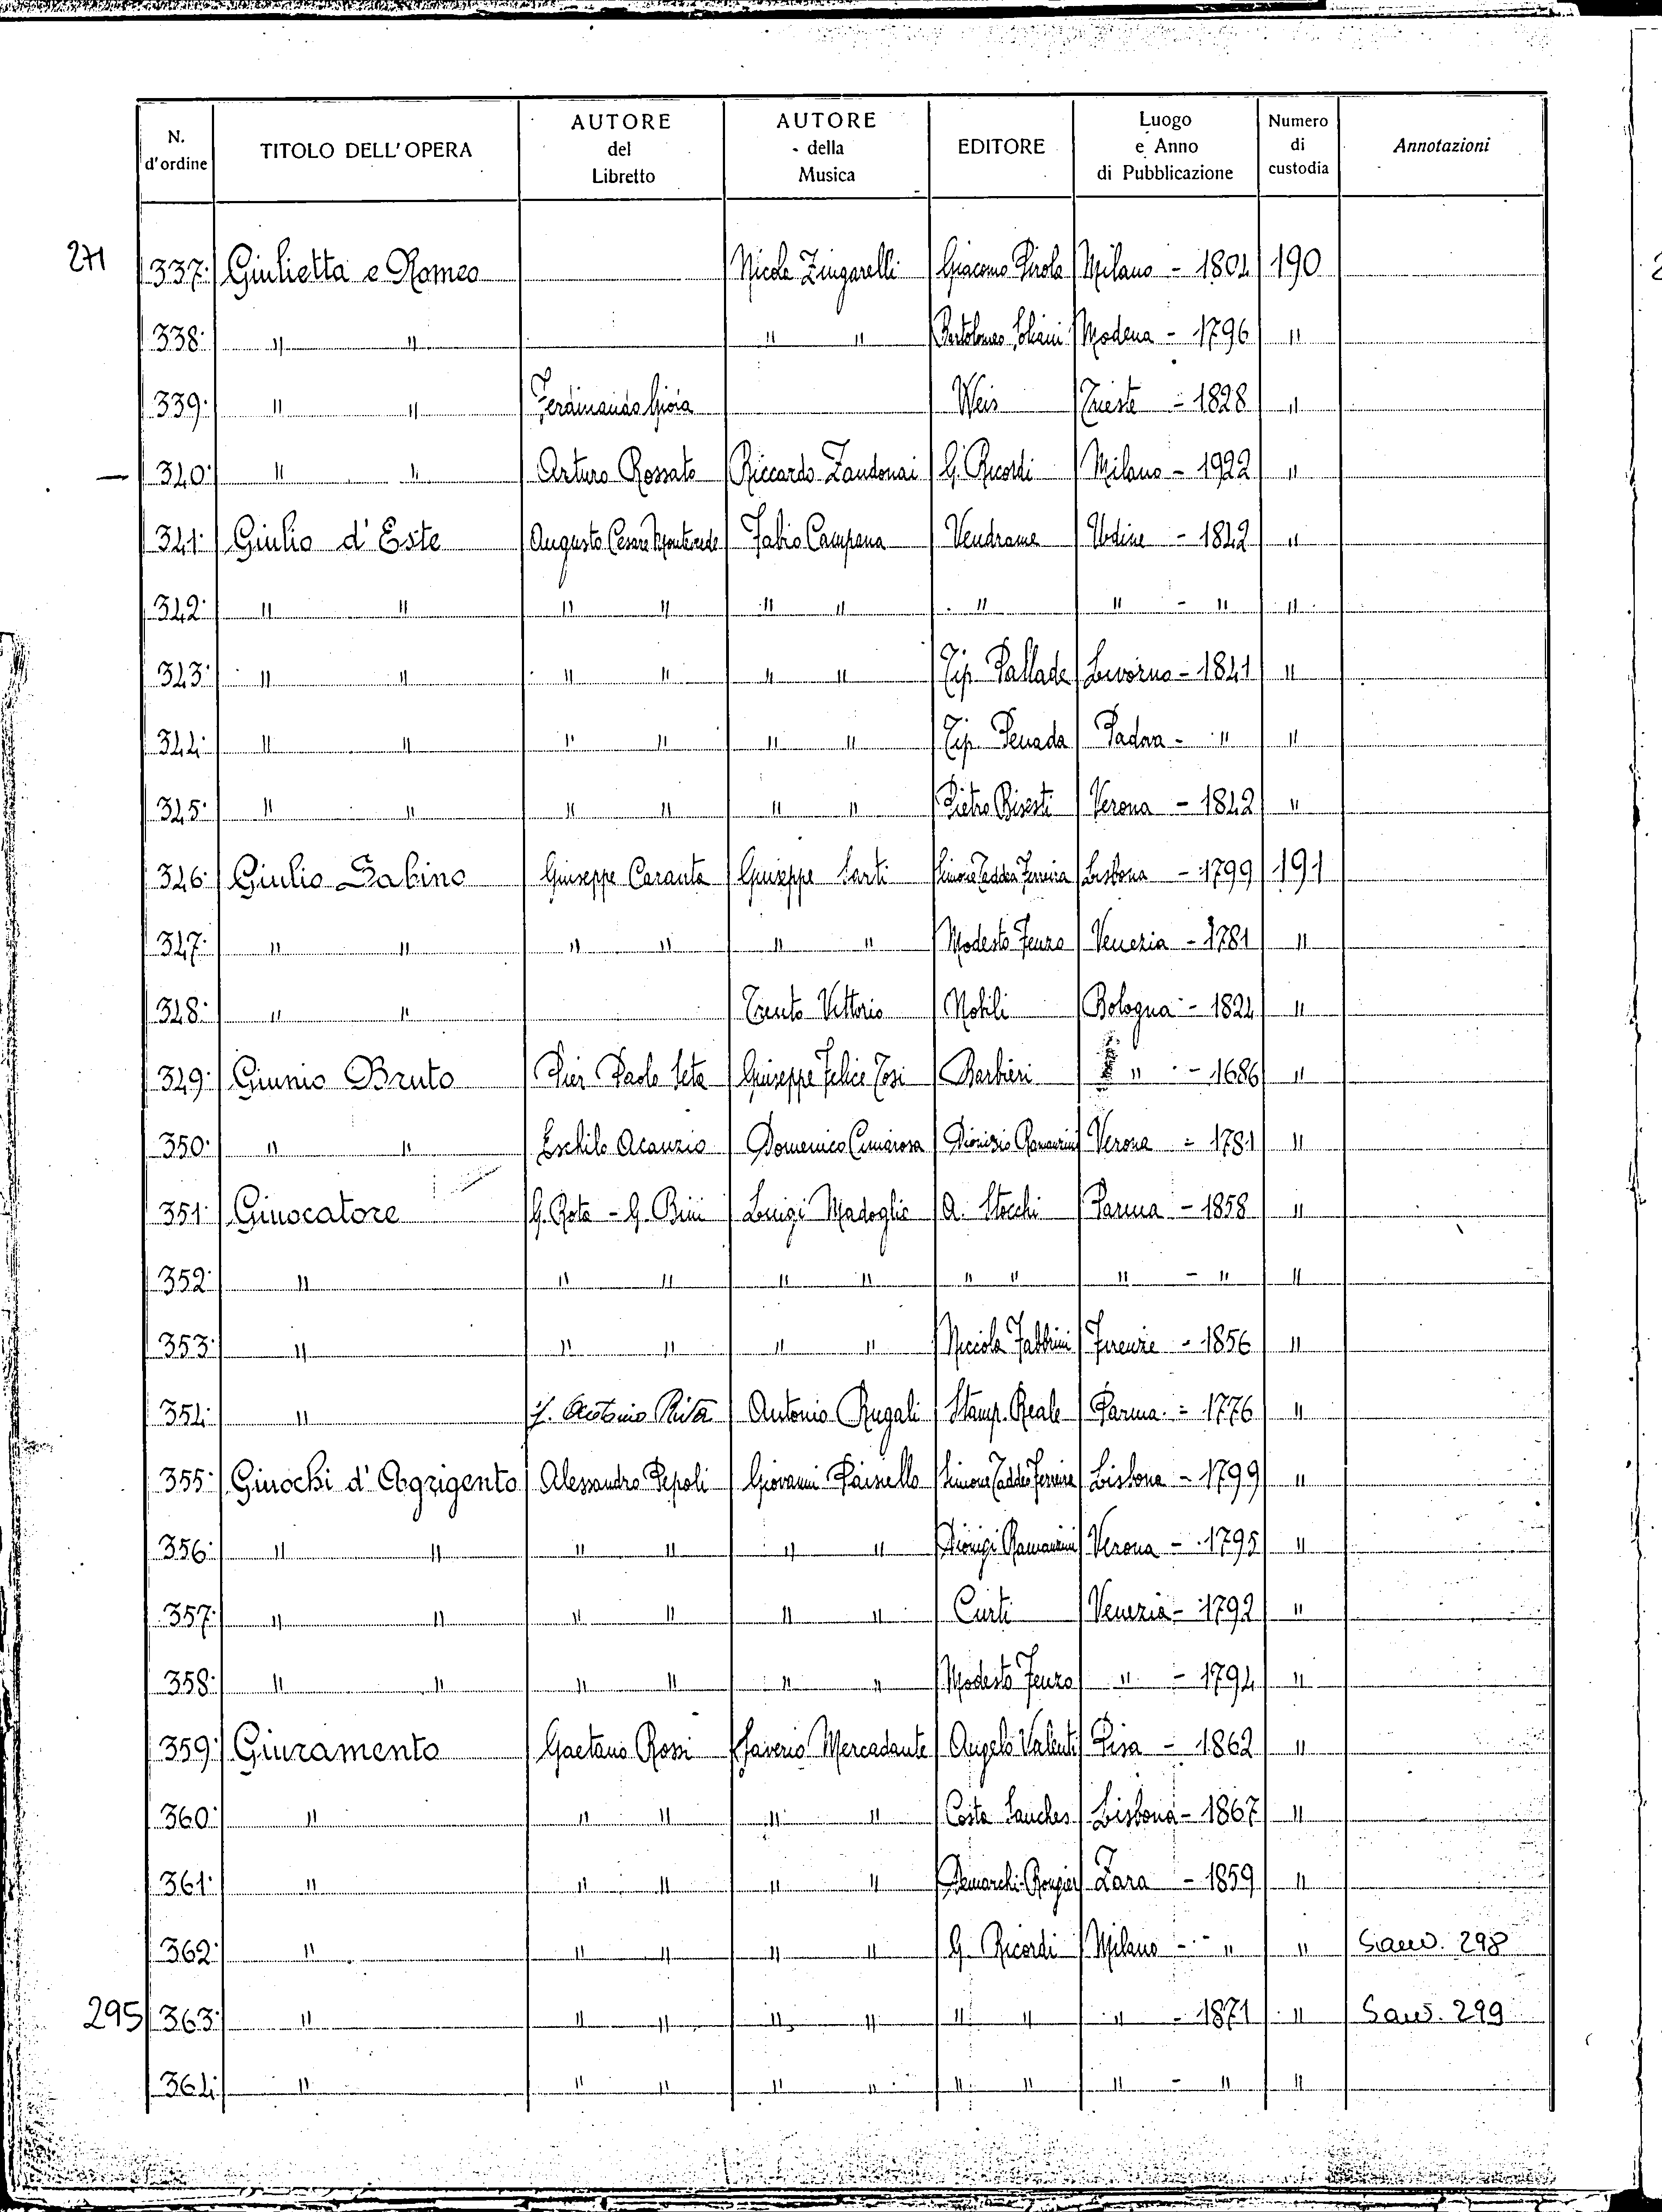 N. d'ordine | TITOLO DELL'OPERA | AUTORE del Libretto | AUTORE della Musica | EDITORE | Luogo e Anno di Pubblicazione | Numero di custodia | Annotazioni
271 337. Giulietta e Romeo Nicola Zingarelli Giacomo Pirola Milano - 1804 190
338. " " " " Bartolomeo Soliani Modena - 1796 "
339. " " Ferdinando Gioia Weis Trieste - 1828 "
— 340. " " Arturo Rossato Riccardo Zandonai G. Ricordi Milano - 1922 "
341. Giulio d'Este Augusto Cesare Monteverde Fabio Campana Vendrame Udine - 1842 "
342. " " " " " " " " - " "
343. " " " " " " Tip. Pallade Livorno - 1841 "
344. " " " " " " Tip. Penada Padova - " "
345. " " " " " " Pietro Bisesti Verona - 1842 "
346. Giulio Sabino Giuseppe Caranta Giuseppe Sarti Simone Taddeo Ferreira Lisbona - 1799 191
347. " " " " " " Modesto Fenzo Venezia - 1781 "
348. " " Trento Vittorio Nobili Bologna - 1824 "
349. Giunio Bruto Pier Paolo Seta Giuseppe Felice Tosi Barbieri " - 1686 "
350. " " Eschilo Acanzio Domenico Cimarosa Dionisio Ramanzini Verona - 1781 "
351. Giuocatore G. Rota - G. Bini Luigi Madoglio A. Stocchi Parma - 1858 "
352. " " " " " " " " - " "
353. " " " " " Niccola Fabbrini Firenze - 1856 "
354. " Antonio Antonio Rugali Stamp. Reale Parma - 1776 "
355. Giuochi d'Agrigento Alessandro Pepoli Giovanni Paisiello Simone Taddeo Ferreira Lisbona - 1799 "
356. " " " " " " Dionigi Ramanzini Verona - 1795 "
357. " " " " " " Curti Venezia - 1792 "
358. " " " " " " Modesto Fenzo " - 1794 "
359. Giuramento Gaetano Rossi Saverio Mercadante Angelo Valenti Pisa - 1862 "
360. " " " " " Costa Sanches Lisbona - 1867 "
361. " " " " " Demarchi-Rougier Zara - 1859 "
362. " " " " " G. Ricordi Milano - " " Saw. 298
295 363. " " " " " " " " - 1871 " Saw. 299
364. " " " " " " " " - " "